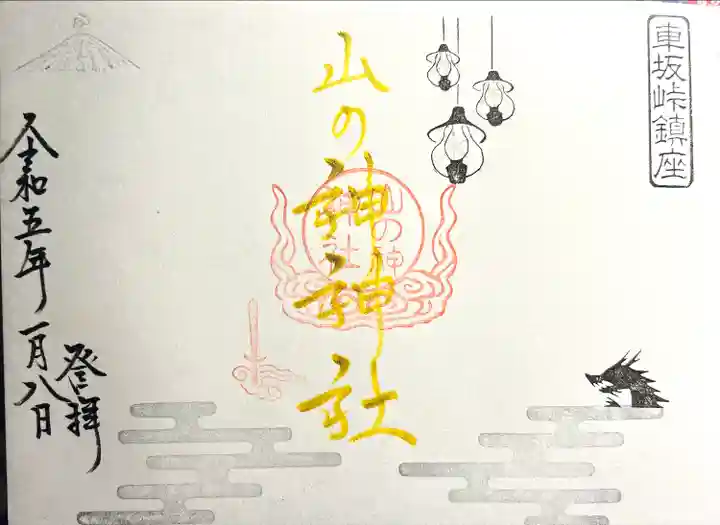 車坂峠鎮座
山の神神社
山の神
神社
令和五年一月八日
登拝